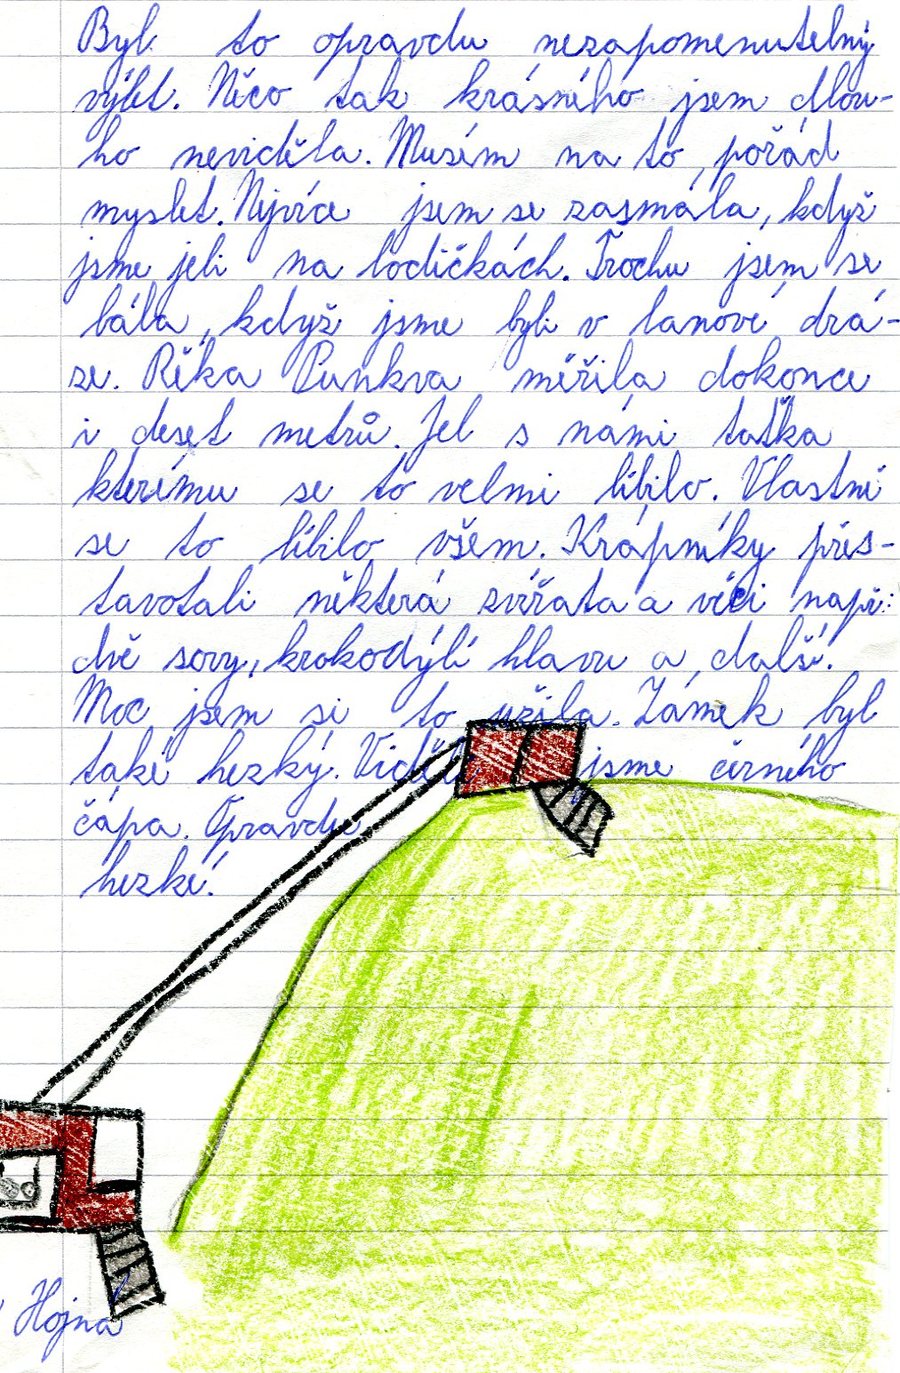 Byl to opravdu nezapomenutelný
výlet. Něco tak krásného jsem dlou-
ho neviděla. Musím na to pořád
myslet. Nejvíce jsem se zasmála, když
jsme jeli na lodičkách. Trochu jsem se
bála, když jsme byli v lanové drá-
ze. Řěka Punkva měřila dokonce
i deset metrů. Jel s námi taťka
kterému se to velmi líbilo. Vlastně
se to líbilo všem. Krápníky přes-
tavotali některá zvířata a věci např.:
dvě sovy, krokodýlí hlavu a další.
Moc jsem si to užila. Zámek byl
také hezký. jsme černého
čápa. Opravdu
hezké!
Hojná